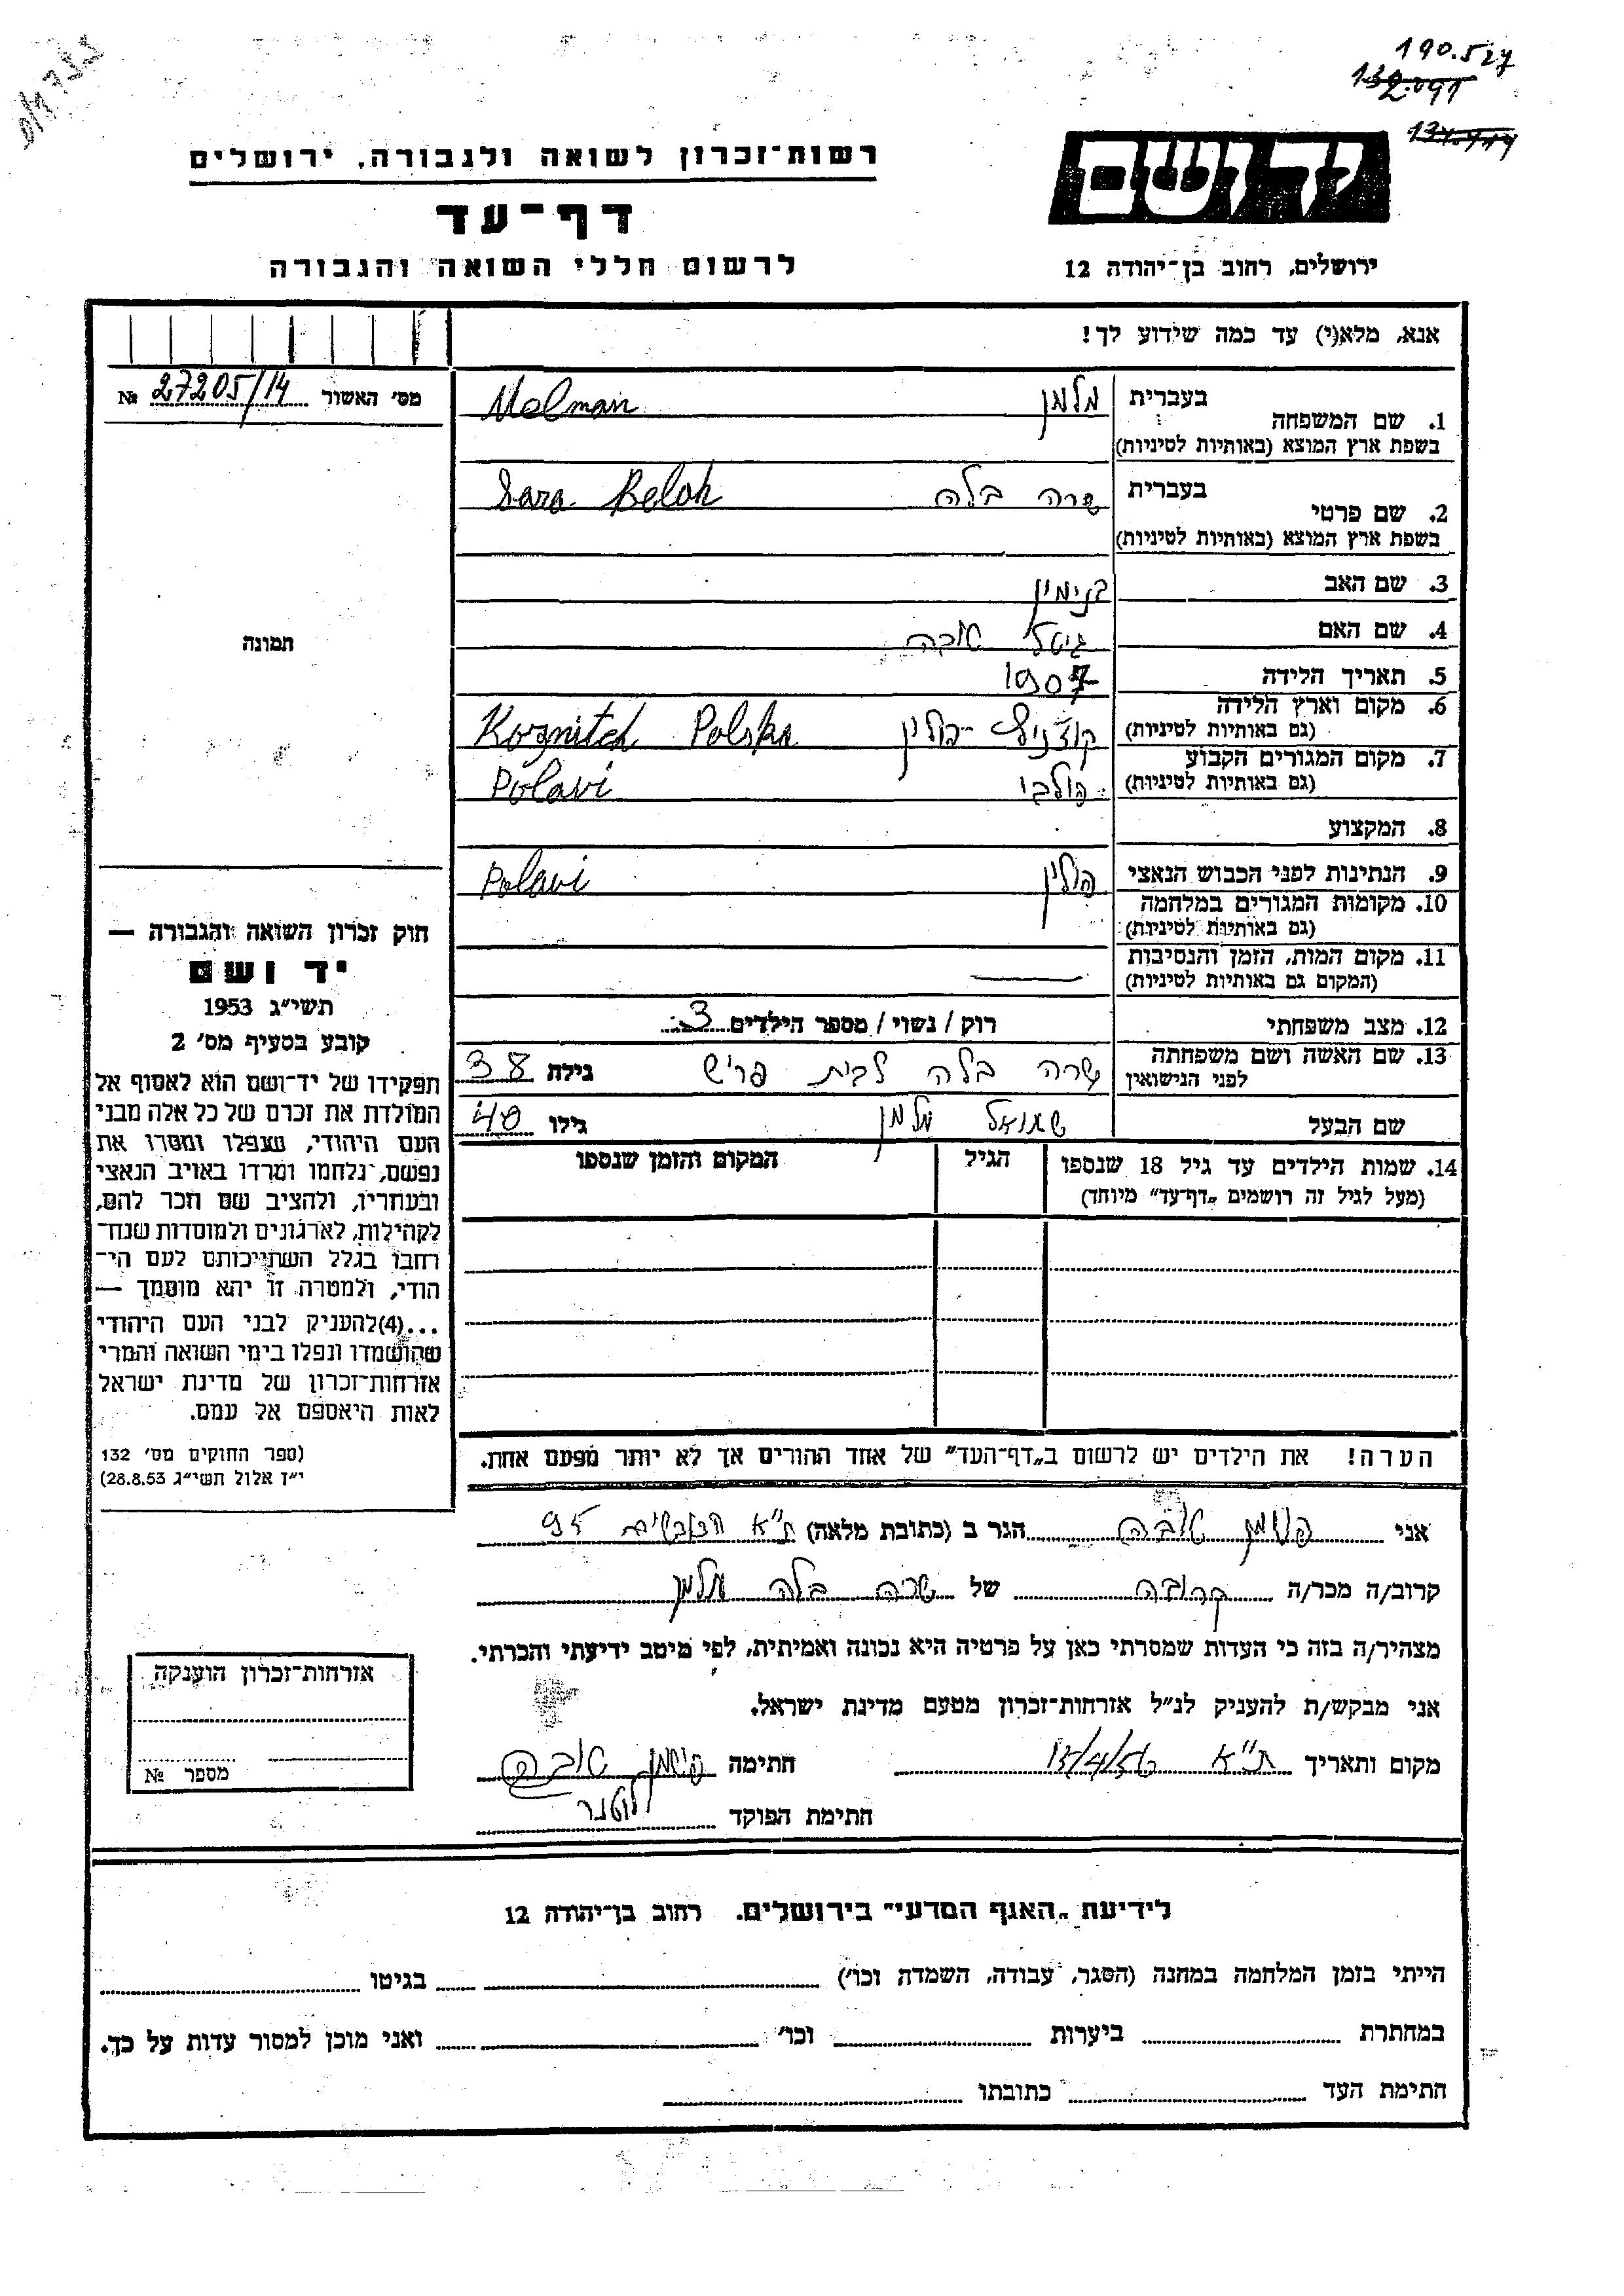 190.527
132.091
רשות־זכרון לשואה ולגבורה, ירושלים
יד ושם
דף־עד
לרשום חללי השואה והגבורה
ירושלים, רחוב בן־יהודה 12
אנא, מלא(י) עד כמה שידוע לך!
מס׳ האשור 27205/14 №
1. שם המשפחה בעברית מלמן Melman
בשפת ארץ המוצא (באותיות לטיניות)
2. שם פרטי בעברית שרה בלה Sara Beloh
בשפת ארץ המוצא (באותיות לטיניות)
3. שם האב בנימין
4. שם האם גיטל טובה
תמונה
5. תאריך הלידה 1907
6. מקום וארץ הלידה קוז'ניץ - פולין Koznitch Polska
(גם באותיות לטיניות)
7. מקום המגורים הקבוע פולבי Polavi
(גם באותיות לטיניות)
8. המקצוע
9. הנתינות לפני הכבוש הנאצי פולין Polavi
10. מקומות המגורים במלחמה
(גם באותיות לטיניות)
11. מקום המות, הזמן והנסיבות
(המקום גם באותיות לטיניות)
12. מצב משפחתי רוק / נשוי / מספר הילדים 3
13. שם האשה ושם משפחתה שרה בלה לבית פריש גילה 38
לפני הנישואין
שם הבעל שמואל מלמן גילו 40
14. שמות הילדים עד גיל 18 שנספו הגיל המקום והזמן שנספו
(מעל לגיל זה רושמים „דף־עד״ מיוחד)
חוק זכרון השואה והגבורה —
יד ושם
תשי״ג 1953
קובע בסעיף מס׳ 2
תפקידו של יד־ושם הוא לאסוף אל
המולדת את זכרם של כל אלה מבני
העם היהודי, שנפלו ומסרו את
נפשם, נלחמו ומרדו באויב הנאצי
ובעוזריו, ולהציב שם וזכר להם,
לקהילות, לארגונים ולמוסדות שנח־
רחבו בגלל השתייכותם לעם הי־
הודי, ולמטרה זו יהא מוסמך —
...(4)להעניק לבני העם היהודי
שהושמדו ונפלו בימי השואה והמרי
אזרחות־זכרון של מדינת ישראל
לאות היאספם אל עמם.
(ספר החוקים מס׳ 132
י״ז אלול תשי״ג 28.8.53)
הערה! את הילדים יש לרשום ב„דף־העד״ של אחד ההורים אך לא יותר מפעם אחת.
אני טובה הגר ב (כתובת מלאה) ת״א הכובשים 95
קרוב/ה מכר/ה קרובה של שרה בלה מלמן
מצהיר/ה בזה כי העדות שמסרתי כאן על פרטיה היא נכונה ואמיתית, לפי מיטב ידיעתי והכרתי.
אני מבקש/ת להעניק לנ״ל אזרחות־זכרון מטעם מדינת ישראל.
מקום ותאריך ת״א 15/4/56 חתימה טובה
חתימת הפוקד
אזרחות־זכרון הוענקה
מספר №
לידיעת „האגף המדעי״ בירושלים, רחוב בן־יהודה 12
הייתי בזמן המלחמה במחנה (הסגר, עבודה, השמדה וכו׳) בגיטו
במחתרת ביערות וכו׳ ואני מוכן למסור עדות על כך.
חתימת העד כתובתו